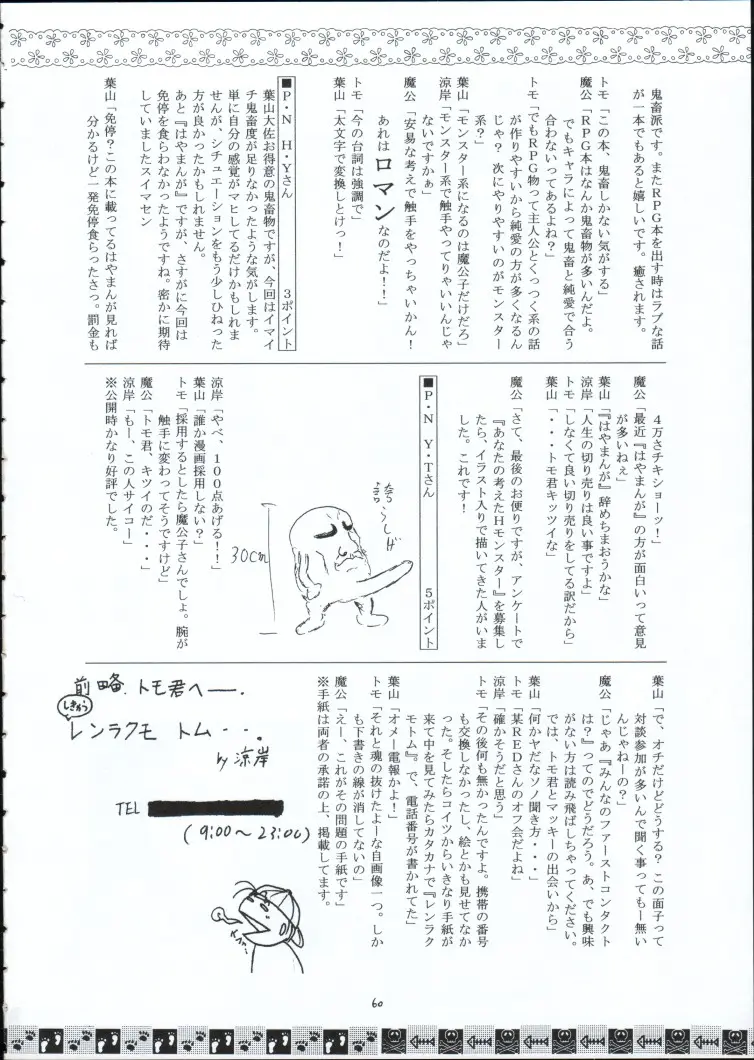 鬼畜派です。またRPG本を出す時はラブな話
が一本でもあると嬉しいです。癒されます。
トモ「この本、鬼畜しかない気がする」
魔公「RPG本はなんか鬼畜物が多いんだよ。
でもキャラによって鬼畜と純愛で合う
合わないってあるよね?」
トモ「でもRPG物って主人公とくっつく系の話
が作りやすいから純愛の方が多くなるん
じゃ? 次にやりやすいのがモンスター
系?」
葉山「モンスター系になるのは魔公子だけだろ」
涼岸「モンスター系で触手やってりゃいいんじゃ
ないですかぁ」
魔公「安易な考えで触手をやっちゃいかん!
あれは ロマン なのだよ!!」
トモ「今の台詞は強調で」
葉山「太文字で変換しとけっ!」
■P・N H・Yさん 3ポイント
葉山大佐お得意の鬼畜物ですが、今回はイマイ
チ鬼畜度が足りなかったような気がします。
単に自分の感覚がマヒしてるだけかもしれま
せんが、シチュエーションをもう少しひねった
方が良かったかもしれません。
あと『はやまんが』ですが、さすがに今回は
免停を食らわなかったようですね。密かに期待
していましたスイマセン
葉山「免停?この本に載ってるはやまんが見れば
分かるけど一発免停食らったさっ。罰金も
4万さチキショーッ!」
魔公「最近『はやまんが』の方が面白いって意見
が多いねぇ」
葉山「『はやまんが』辞めちまおうかな」
涼岸「人生の切り売りは良い事ですよ」
トモ「しなくて良い切り売りをしてる訳だから」
葉山「・・・トモ君キッツイな」
魔公「さて、最後のお便りですが、アンケートで
『あなたの考えたHモンスター』を募集し
たら、イラスト入りで描いてきた人がいま
した。これです!
■P・N Y・Tさん 5ポイント
誇らしげ
30cm
涼岸「やべ、100点あげる!!」
葉山「誰か漫画採用しない?」
トモ「採用するとしたら魔公子さんでしょ。腕が
触手に変わってそうですけど」
魔公「トモ君、キツイのだ・・・」
涼岸「もー、この人サイコー」
※公開時かなり好評でした。
葉山「で、オチだけどどうする? この面子って
対談参加が多いんで聞く事ってもー無い
んじゃねーの?」
魔公「じゃあ『みんなのファーストコンタクト
は?』ってのでどうだろう。あ、でも興味
がない方は読み飛ばしちゃってください。
では、トモ君とマッキーの出会いから」
葉山「何かヤだなソノ聞き方・・・」
トモ「某REDさんのオフ会だよね」
涼岸「確かそうだと思う」
トモ「その後何も無かったんですよ。携帯の番号
も交換しなかったし、絵とかも見せてなか
った。そしたらコイツからいきなり手紙が
来て中を見てみたらカタカナで『レンラク
モトム』で、電話番号が書かれてた」
葉山「オメー電報かよ!」
トモ「それと魂の抜けたよーな自画像一つ。しか
も下書きの線が消してないの」
魔公「えー、これがその問題の手紙です」
※手紙は両者の承諾の上、掲載してます。
前略、トモ君へ――.
しきゅう
レンラクモトム・・・。
by 涼岸
TEL
(9:00~23:00)
60